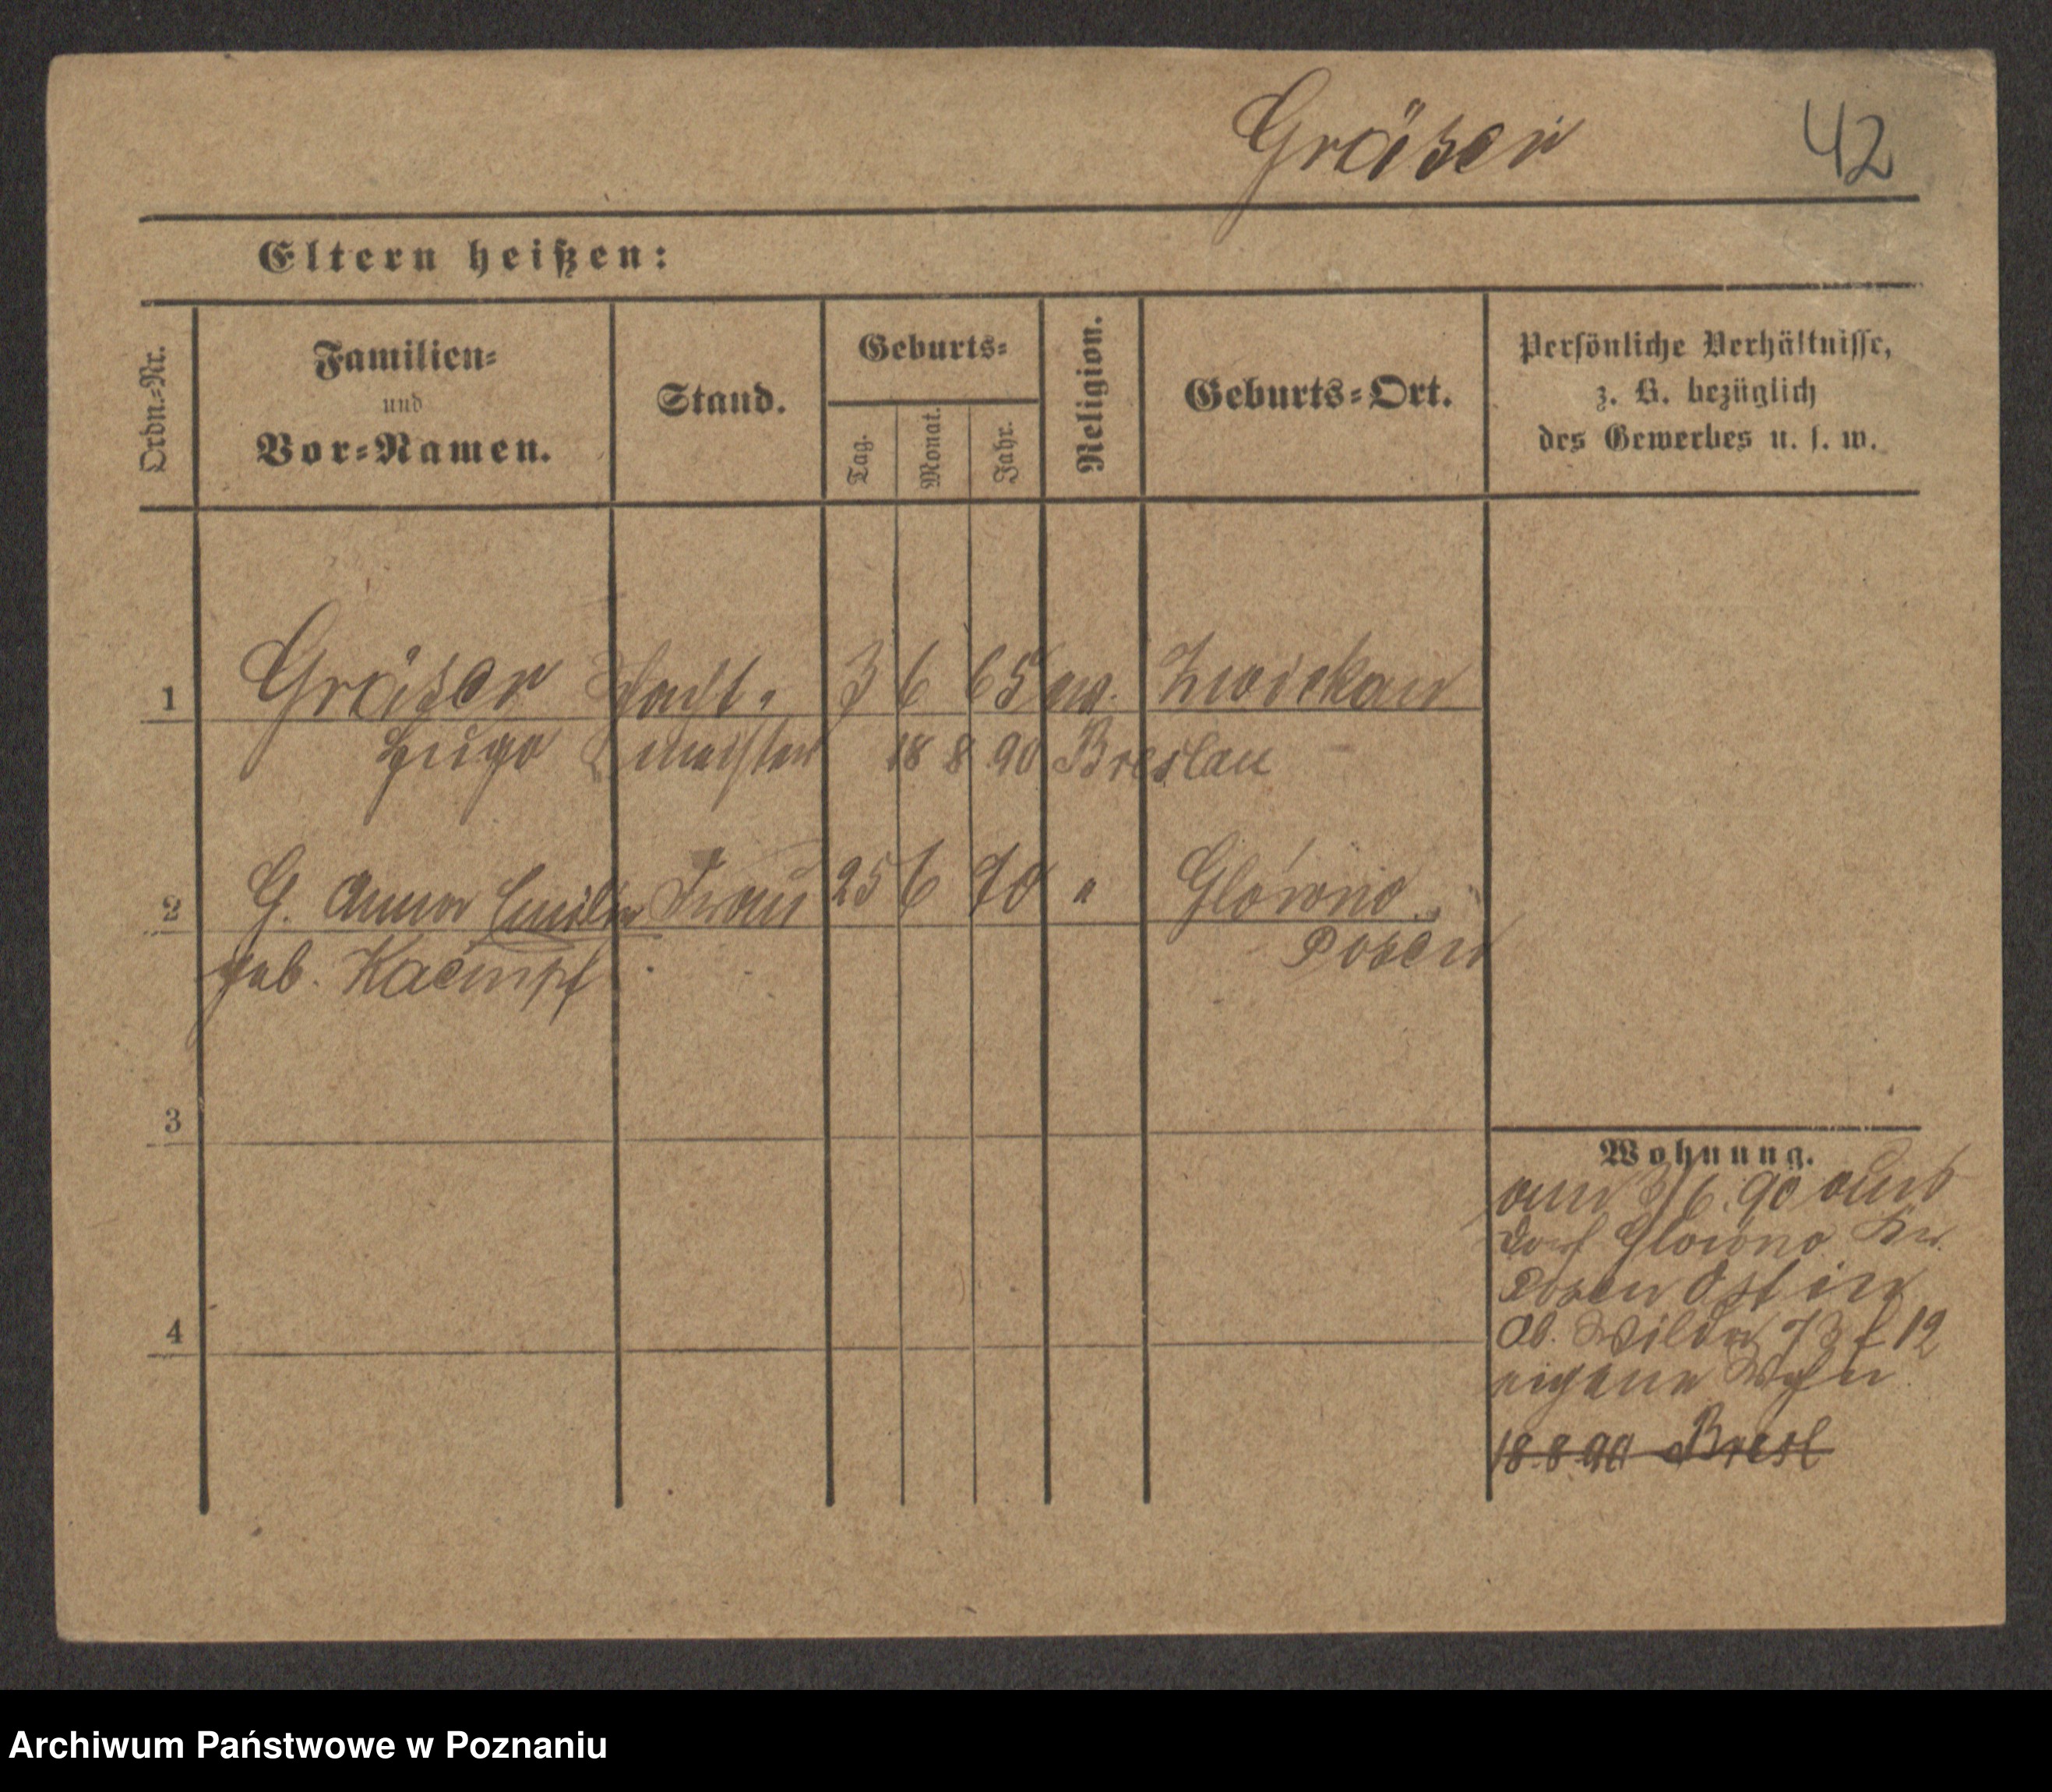 Gräser 42
Eltern heißen:
Ordn.-Nr. Familien- und Vor-Namen. Stand. Geburts- Tag. Monat. Jahr. Religion. Geburts-Ort. Persönliche Verhältnisse, z. B. bezüglich des Gewerbes u. s. w.
1 Gräser 3 6 65 ev. Zwickau
Hugo meister 18 8 90 Breslau
2 G. Anna Emilie Frau 25 6 70 " Glówno
geb. Kaempf Posen
3
Wohnung.
am 3/6. 90 aus
Dorf Glowno Kr.
Posen Ost in
4
Ob. Wilda 73 f 12
eigene
18.8.90 Bresl
Archiwum Państwowe w Poznaniu